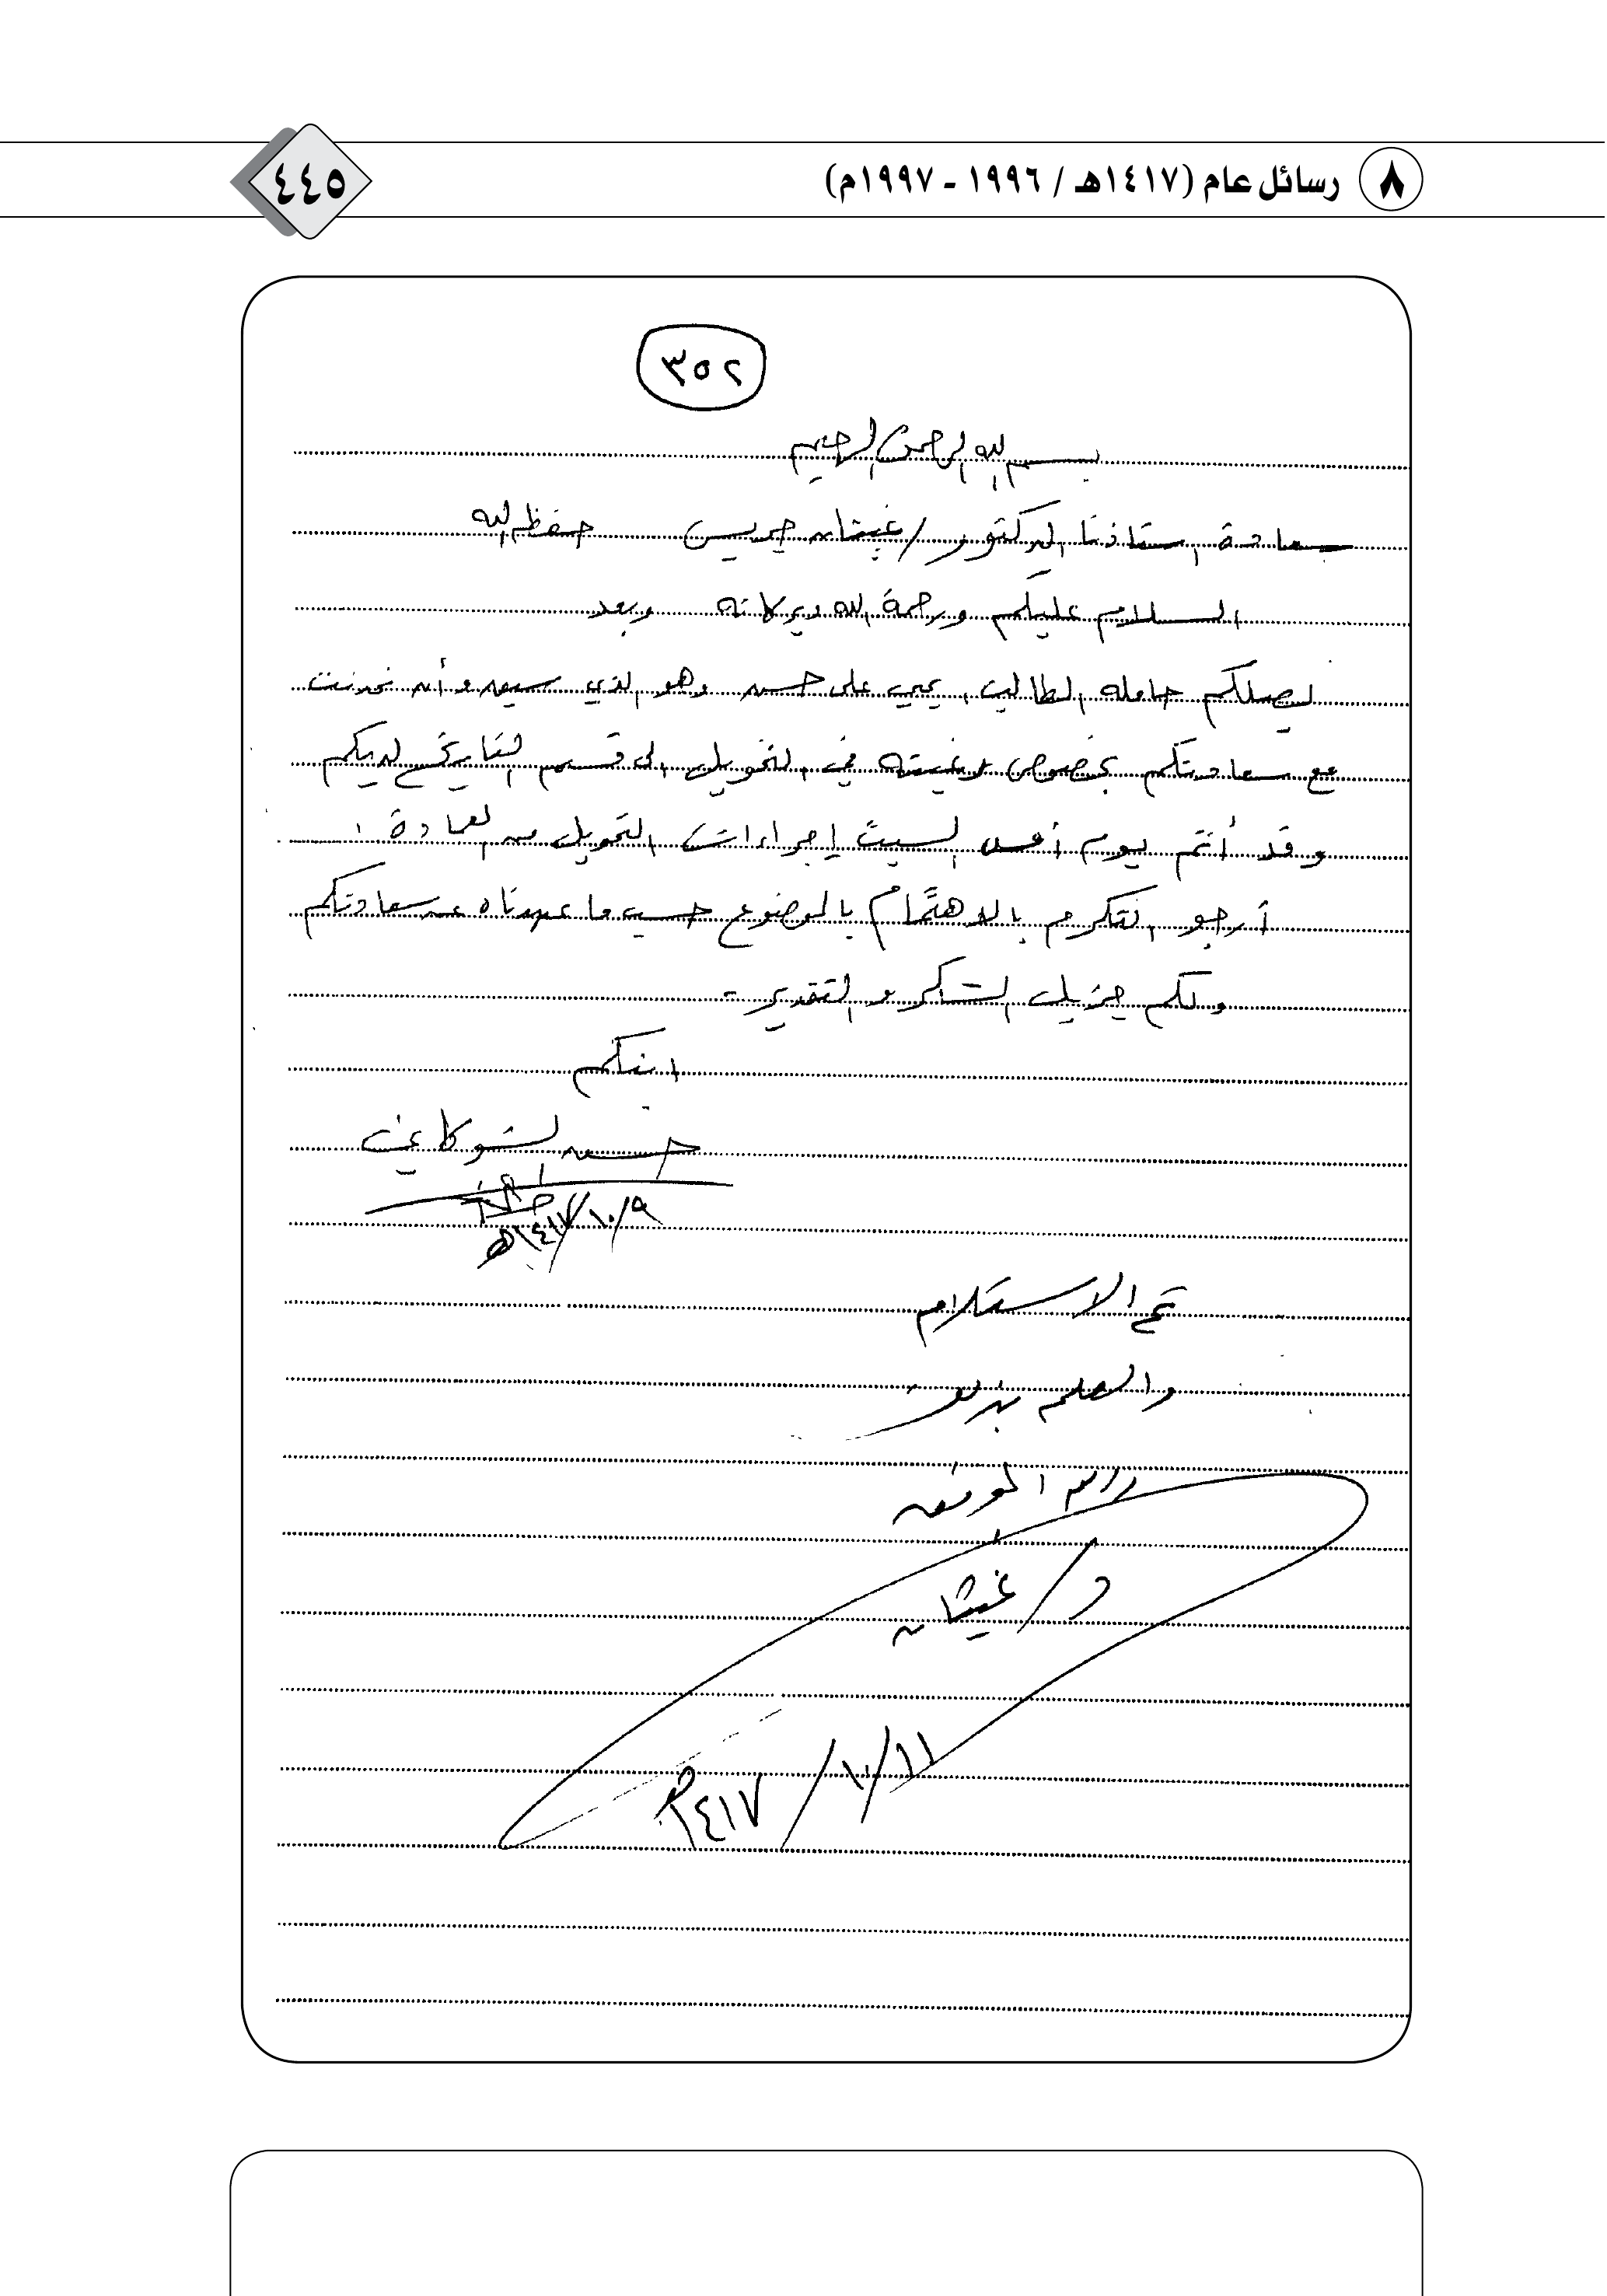 ٨ رسائل عام (١٤١٧هـ / ١٩٩٦ - ١٩٩٧م)
٤٤٥
٣٥٢
بسم الله الرحمن الرحيم
سعادة استاذنا الدكتور / غيثان جريس حفظه الله
السلام عليكم ورحمة الله وبركاته وبعد
يصلكم حامله الطالب يحيى علي حسن وهو الذي سبق وأن تحدثت
مع سعادتكم بخصوص رغبته في التحويل الى قسم التاريخ لديكم
وقد أتم يوم أمس السبت إجراءات التحويل من العمادة .
أرجو التكرم بالاهتمام بالموضوع حسب ما عهدناه عن سعادتكم
ولكم جزيل الشكر والتقدير -
ابنكم
حسن الشوكاني
٩/١٠/١٤١٧هـ
تم الاستلام
والعلم بذلك
والله الموفق
د/ غيثان
١١/١٠/١٤١٧هـ